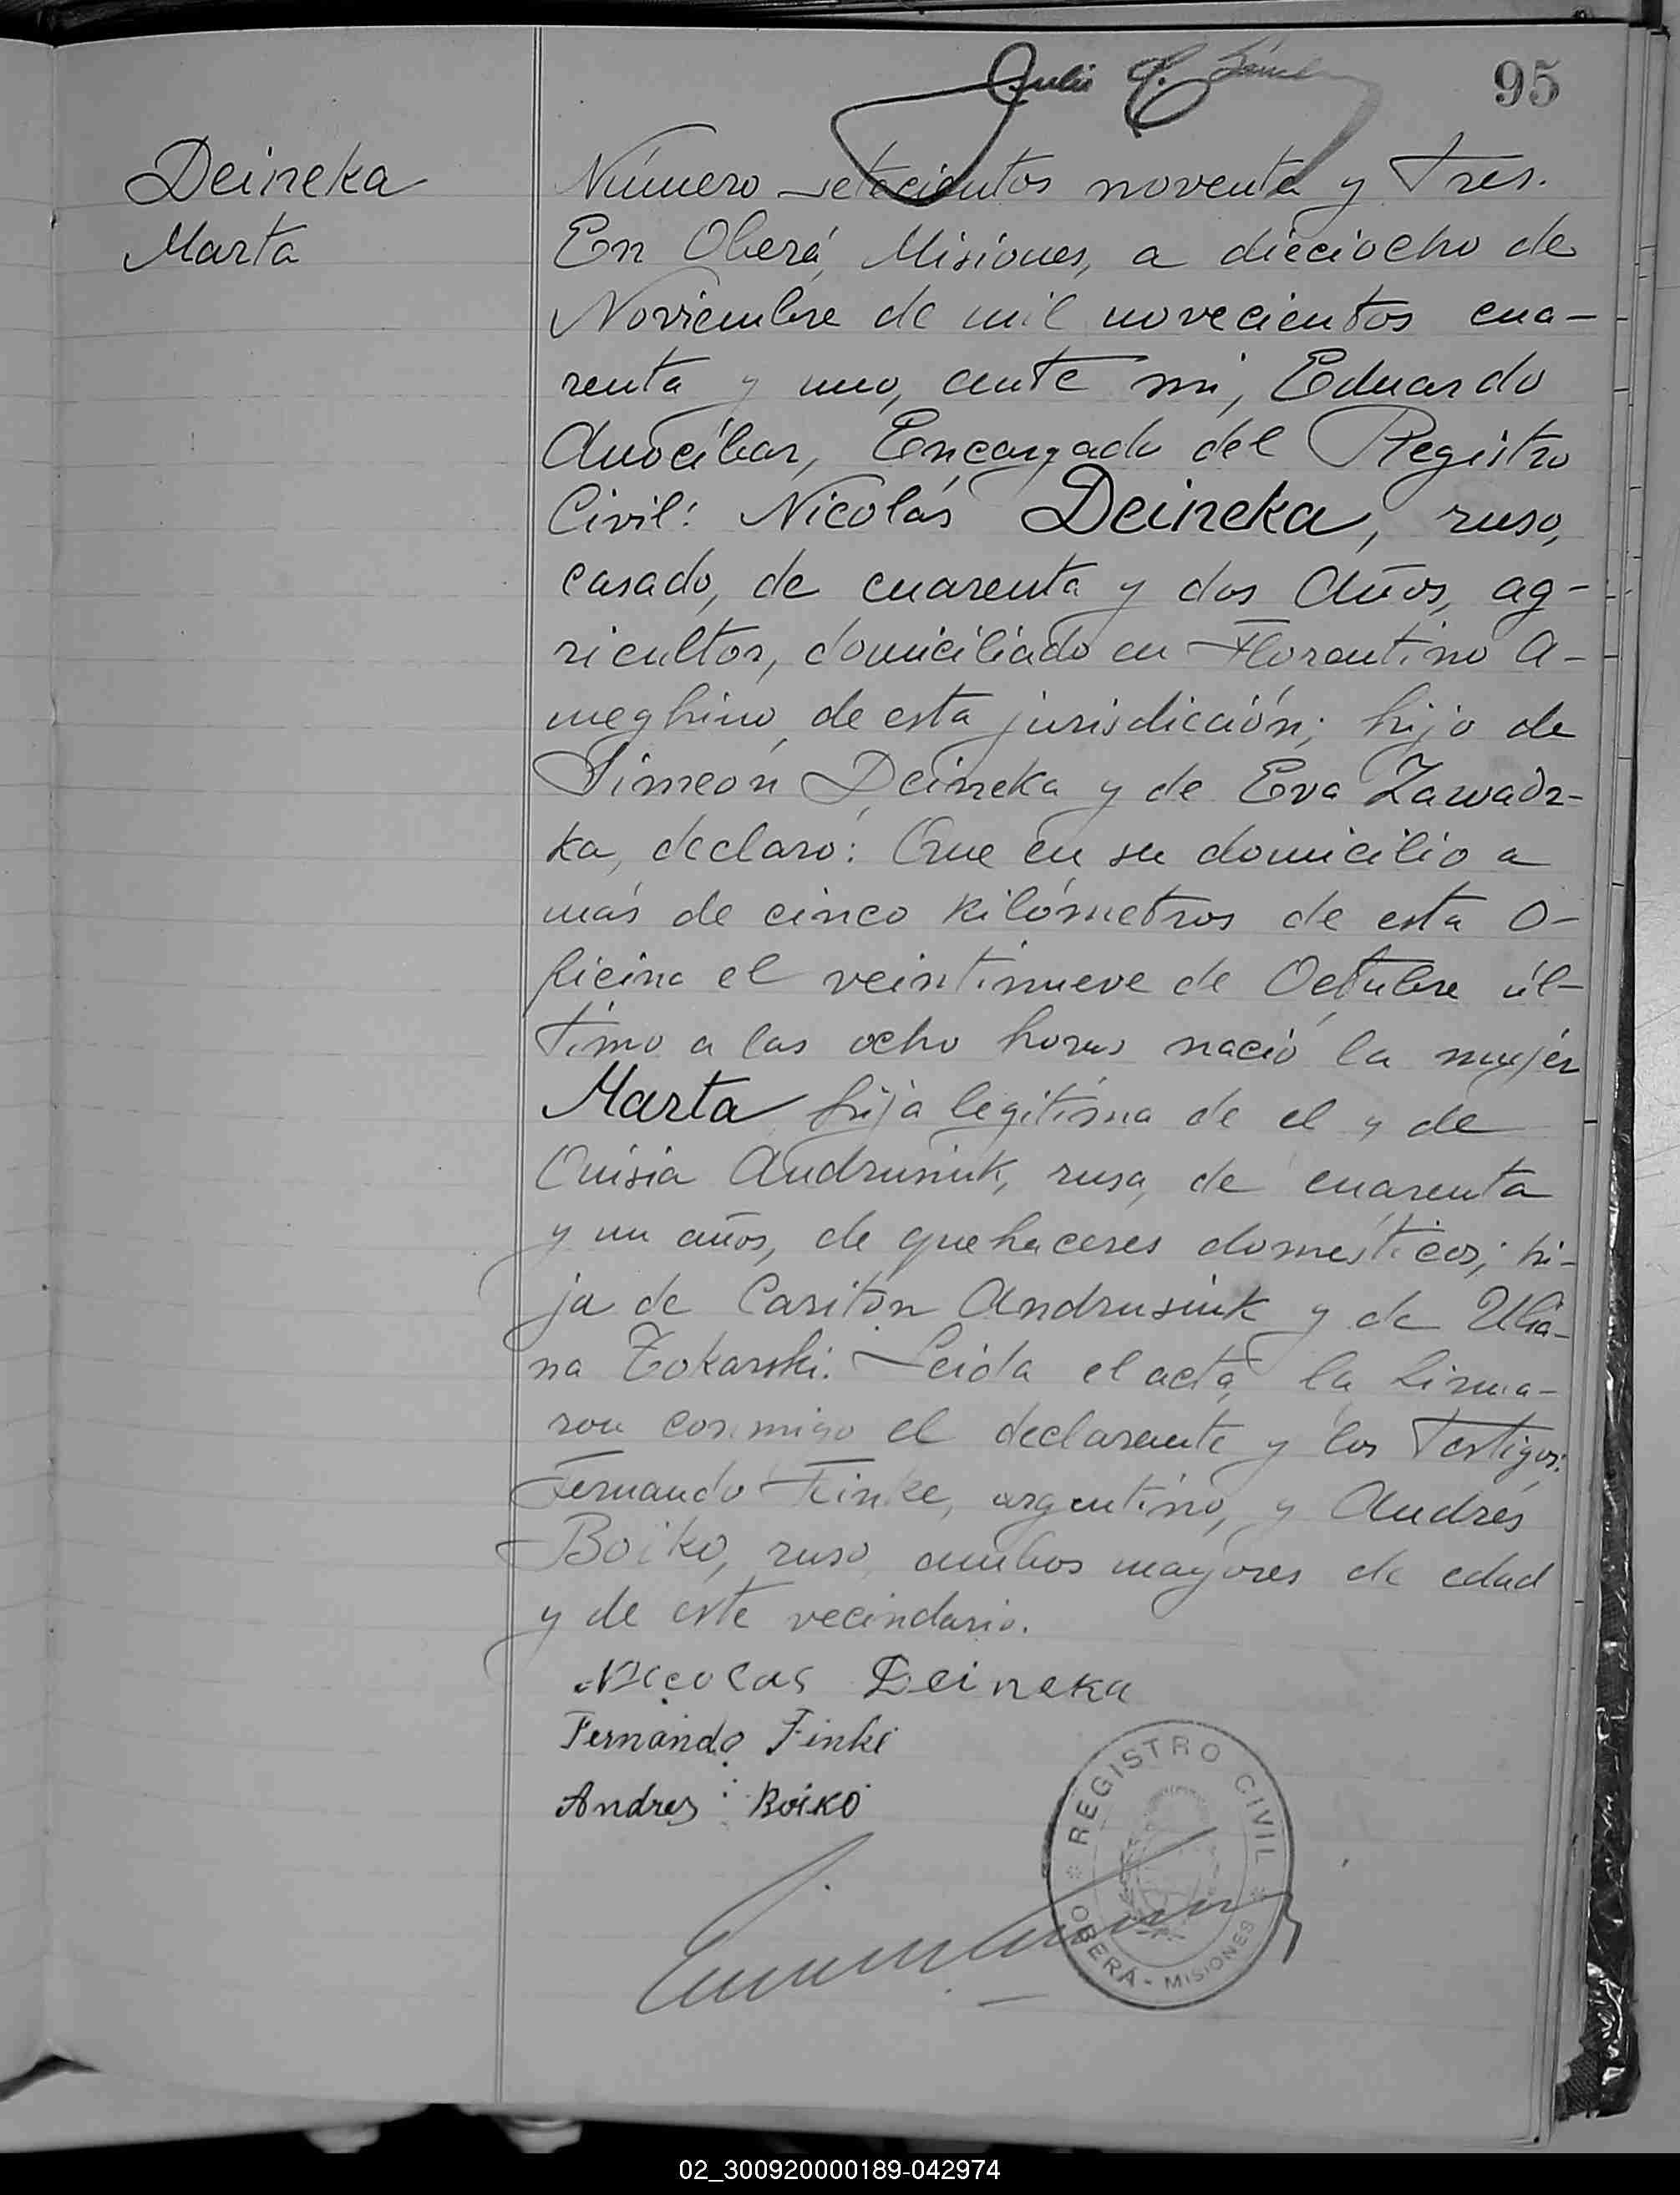 95
Deineka
Marta
Número setecientos noventa y Tres.
En Oberá, Misiones, a dieciocho de
Noviembre de mil novecientos cua-
renta y uno, ante mi, Eduardo
Anocíbar, Encargado del Registro
Civil: Nicolás Deineka, ruso,
casado, de cuarenta y dos años, ag-
ricultor, domiciliado en Florentino A-
meghino, de esta jurisdicción; hijo de
Simeón Deineka y de Eva Zawadz-
ka, declaró: Que en su domicilio a
más de cinco kilómetros de esta O-
ficina el veintinueve de Octubre úl-
timo a las ocho horas nació la mujer
Marta hija legítima de el y de
Onisia Andrusiuk, rusa, de cuarenta
y un años, de quehaceres domésticos; hi-
ja de Cariton Andrusiuk y de Ulia-
na Tokarski. Leida el acta, la firma-
ron conmigo el declarante y los Testigos:
Fernando Finke, argentino, y Andrés
Boiko, ruso, ambos mayores de edad
y de este vecindario.
Nicolas Deineka
Fernando Finke
Andres Boiko
REGISTRO CIVIL
OBERÁ - MISIONES
02_300920000189-042974